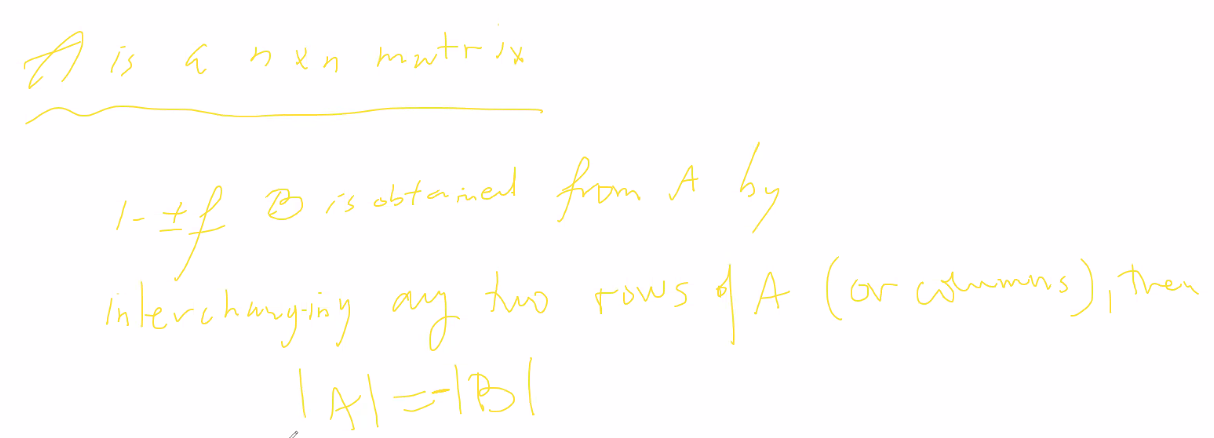 A is a n x n matrix
1- If B is obtained from A by
interchanging any two rows of A (or columns), then
|A| = -|B|